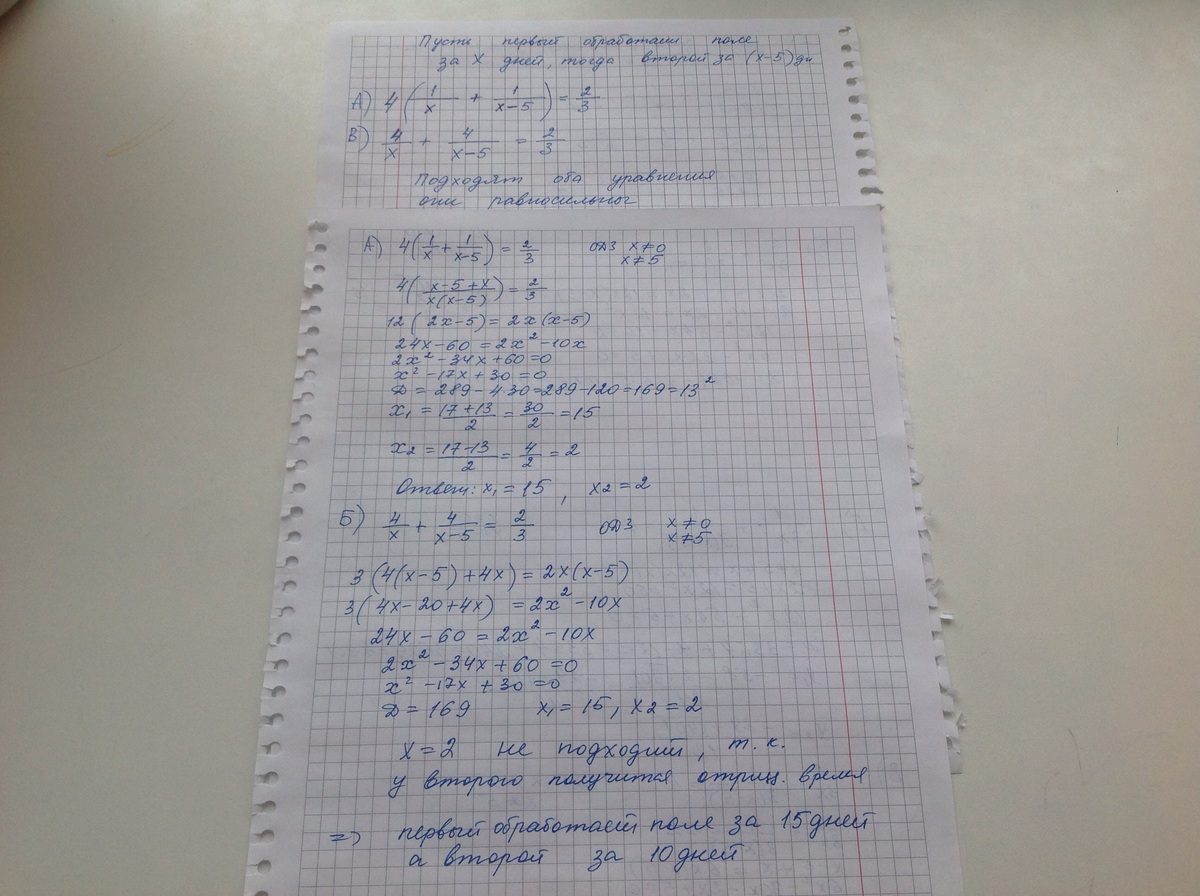 Пусть первый обработает поле
за x дней, тогда второй за (x-5) дн
А) 4(1/x + 1/(x-5)) = 2/3
В) 4/x + 4/(x-5) = 2/3
Подходят оба уравнения
они равносильны
А) 4(1/x + 1/(x-5)) = 2/3 ОДЗ x≠0
x≠5
4((x-5+x)/(x(x-5))) = 2/3
12(2x-5) = 2x(x-5)
24x-60 = 2x²-10x
2x²-34x+60=0
x²-17x+30=0
D = 289-4·30=289-120=169=13²
x₁ = (17+13)/2 = 30/2 = 15
x₂ = (17-13)/2 = 4/2 = 2
Ответ: x₁ = 15, x₂ = 2
Б) 4/x + 4/(x-5) = 2/3 ОДЗ x≠0
x≠5
3(4(x-5)+4x) = 2x(x-5)
3(4x-20+4x) = 2x²-10x
24x-60 = 2x²-10x
2x²-34x+60=0
x²-17x+30=0
D = 169 x₁ = 15, x₂ = 2
x=2 не подходит, т.к.
у второго получится отриц. время
=> первый обработает поле за 15 дней
а второй за 10 дней